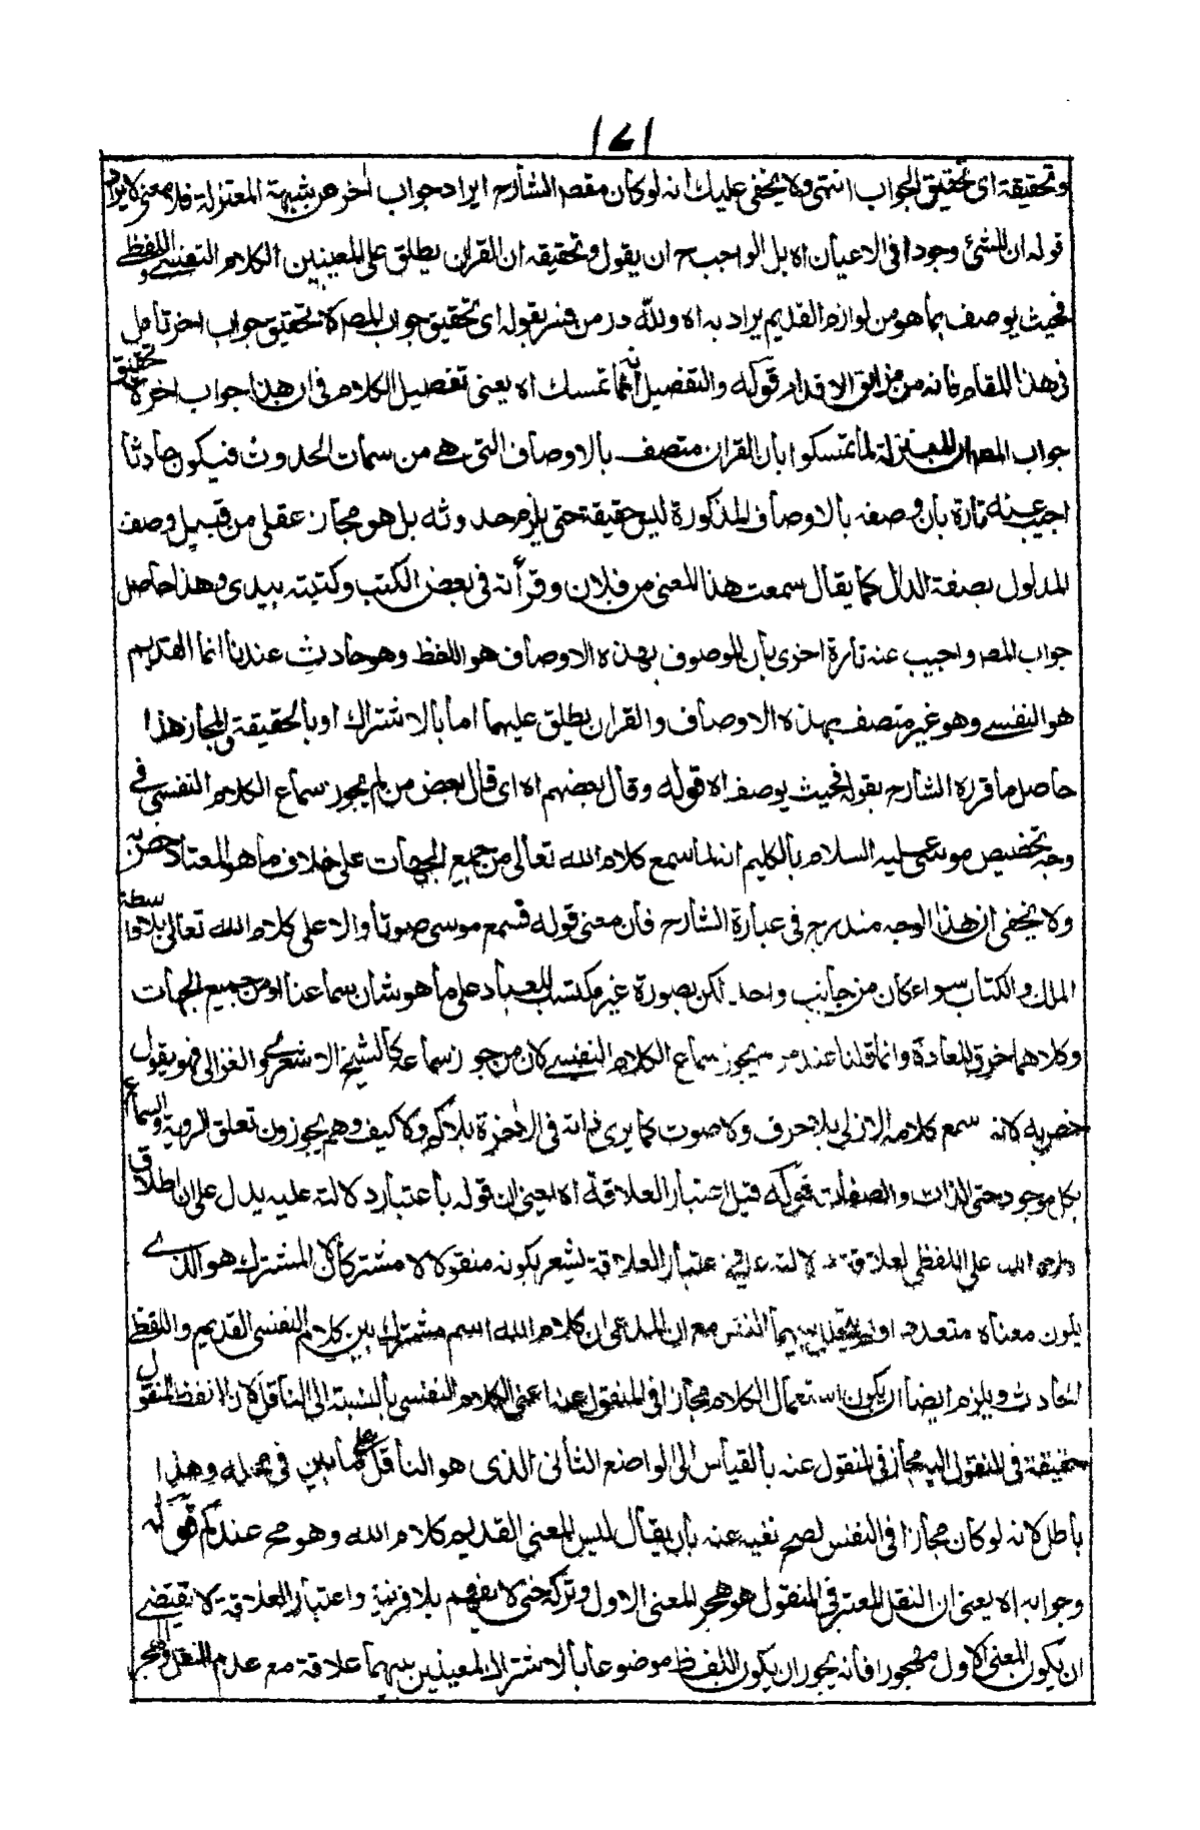 ١٧١
وتحقيقة اى تحقيق الجواب انتهى ولا يخفى عليك انه لو كان مقصد الشارح ايراد جواب اخر عن شبهة المعتزلة فلا معنى لايراد
قوله ان للشئ وجودا فى الاعيان اه بل الواجب ح ان يقول وتحقيقه ان القران يطلق على المعنيين الكلام النفسى واللفظى
فحيث يوصف بما هو من لوازم القديم يراد به اه ولله در من فسر بقوله اى تحقيق جواب المصر لا تحقيق جواب اخر تامل
فى هذا المقام فانه من مزالق الاقدام قوله والتفصيل انه انما تمسك اه يعنى تفصيل الكلام فى ان هذا جواب اخر لا تحقيق
جواب المصر ان المعتزلة لما تمسكوا بان القران متصف بالاوصاف التى هے من سمات الحدوث فيكون حادثا
اجيب عنه تارة بان وصفه بالاوصاف المذكورة ليس حقيقة حتى يلزم حدوثه بل هو مجاز عقلى من قبيل وصف
المدلول بصفة الدال كما يقال سمعت هذا المعنى من فلان وقرأته فى بعض الكتب وكتبته بيدى وهذا حاصل
جواب المصر واجيب عنه تارة اخرى بان الموصوف بهذه الاوصاف هو اللفظ وهو حادث عندنا انما القديم
هو النفسے وهو غير متصف بهذه الاوصاف والقران يطلق عليهما اما بالاشتراك او بالحقيقة والمجاز هذا
حاصل ما قرره الشارح بقوله فحيث يوصف اه قوله وقال بعضهم اه اى قال بعض من لم يجوز سماع الكلام النفسى فے
وجه تخصيص موسى عليه السلام بالكليم انه لما سمع كلام الله تعالى من جميع الجهات على خلاف ما هو المعتاد خص به
ولا يخفى ان هذا الوجه مندرج فى عبارة الشارح فان معنى قوله فسمع موسى صوتا دالا على كلام الله تعالى بلا واسطة
الملك والكتاب سواء كان من جانب واحد لكن بصورة غير مكتسب للعباد على ما هو شان سماعنا او من جميع الجهات
وكلاهما خرق للعادة وانما قلنا عند من لم يجوز سماع الكلام النفسے لان من جوز سماعه كالشيخ الاشعرے والغزالى فهو يقول
خص به لانه سمع كلامه الازلى بلا حرف ولا صوت كما يرى ذاته فى الاخرة بلا كم ولا كيف وهم يجوزون تعلق الروية والسماع
بكل موجود حتى الذات والصفات قوله قيل اعتبار العلاقة اه يعنى ان قوله باعتبار دلالته عليه يدل على ان اطلاق
كلام الله على اللفظى لعلاقة دلالته عليه واعتبار العلاقة يشعر بكونه منقولا لا مشتركا لان المشترك هو الذے
يكون معناه متعددا ولم يتخلل بينهما النقل مع ان المدعى ان كلام الله اسم مشترك بين كلام النفسى القديم واللفظى
الحادث ويلزم ايضا ان يكون استعمال الكلام مجازا فى المنقول عنه اعنى الكلام النفسى بالنسبة الى الناقل لان اللفظ المنقول
حقيقة فى المنقول اليه مجاز فى المنقول عنه بالقياس الى الواضع الثانى الذى هو الناقل على ما بين فى محله وهذا
باطل لانه لو كان مجازا فى النفسى لصح نفيه عنه بان يقال ليس المعنى القديم كلام الله وهو مح عندكم قوله
وجوابه اه يعنى ان النقل المعتبر فى المنقول هو هجر المعنى الاول وتركه حتى لا يفهم بلا قرينة واعتبار العلاقة لا تقتضے
ان يكون المعنى الاول مهجورا فانه يجوز ان يكون اللفظ موضوعا بالاشتراك لمعنيين بينهما علاقة مع عدم النقل والهجر